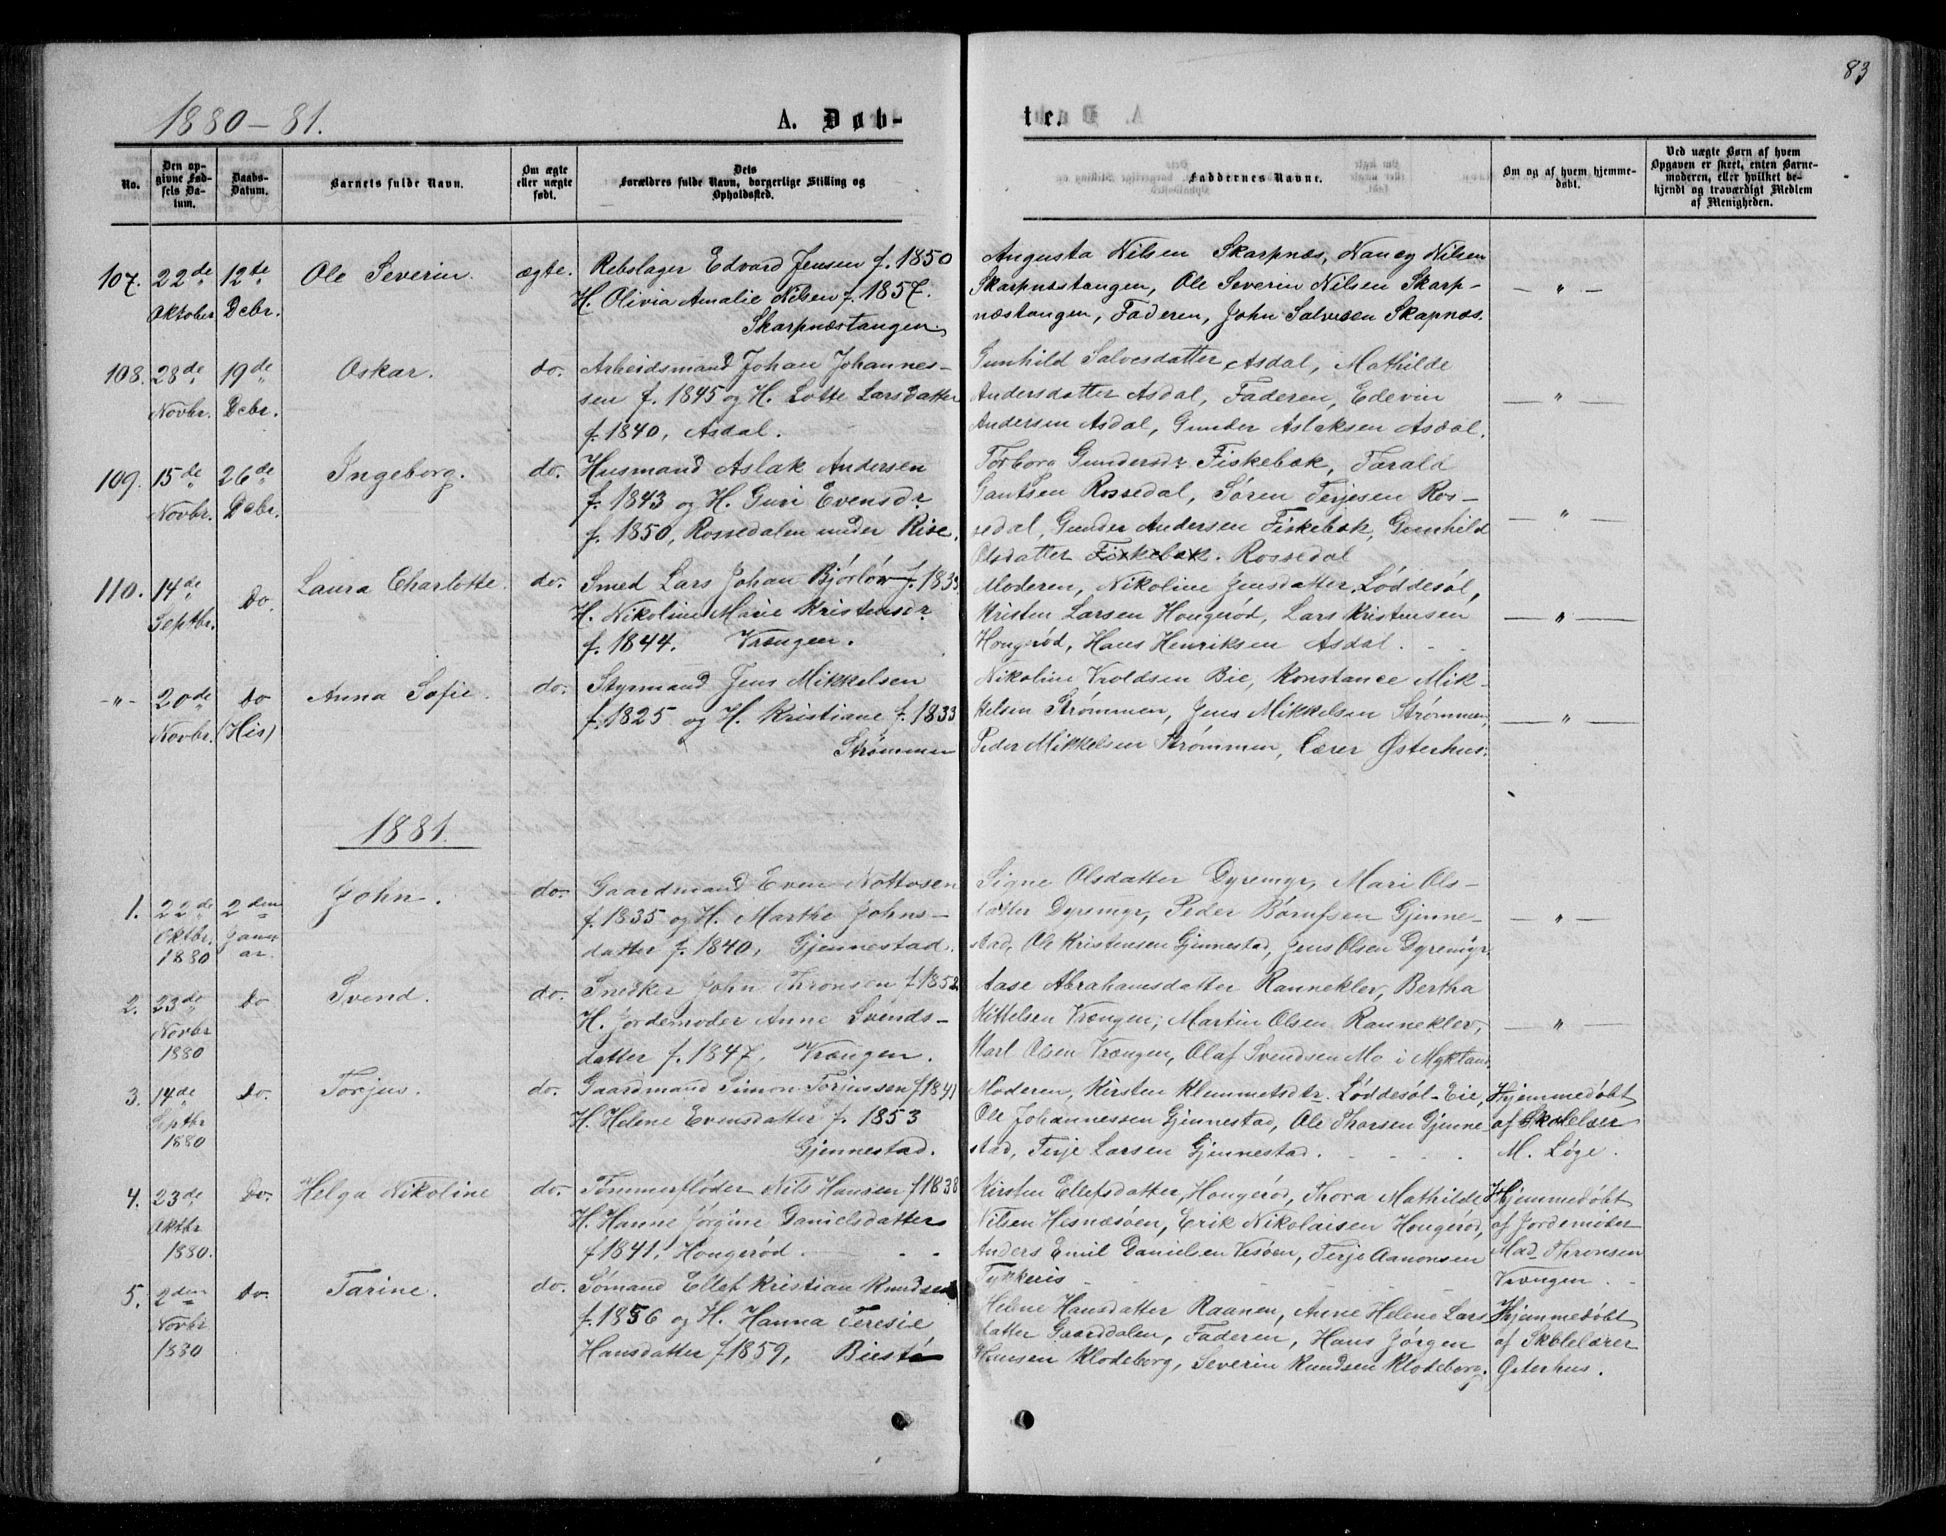 83
1880-81.
A. Døb-
te.
No.
Den opgivne Fødsels Datum.
Daabs-Datum.
Barnets fulde Navn.
Om ægte eller uægte født.
Dets Forældres fulde Navn, borgerlige Stilling og Opholdssted.
Faddernes Navne.
Om og af hvem hjemmedøbt.
Ved uægte Børn af hvem Opgaven er skeet, enten Barnemoderen, eller hvilket bekjendt og troværdigt Medlem af Menigheden.
107. 22de Oktober 12te Debr. Ole Severin. ægte.
Rebslager Edvard Jensen f. 1850
H. Olivia Amalie Nilsen f. 1857.
Skarpnæstangen.
Augusta Nilsen Skarpnæs, Nancy Nilsen
Skarpnæstangen, Ole Severin Nilsen Skarp-
næstangen, Faderen, John Salvesen Skapnæs.
— " —
108. 28de Novbr. 19de Debr. Oskar. do.
Arbeidsmand Johan Johannes-
sen f. 1845 og H. Lotte Larsdatter
f. 1840, Asdal.
Gunhild Salvesdatter Asdal, Mathilde
Andersdatter Asdal, Faderen, Edevin
Andersen Asdal, Gunder Aslaksen Asdal.
— " —
109. 15de Novbr. 26de Debr. Ingeborg. do.
Husmand Aslak Andersen
f. 1843 og H. Guri Evensdr
f. 1850, Rossedalen under Rise.
Torbora Gundersdr Fiskebæk, Tarald
Gautsen Rossedal, Søren Terjesen Ros-
sedal, Gunder Andersen Fiskebæk, Gunhild
Olsdatter Fiskebæk. Rossedal
— " —
110. 14de Septbr. Do. Laura Charlotte. do.
Smed Lars Johan Bjørløv f. 1833
H. Nikoline Marie Kristensdr
f. 1844. Vrængen.
Moderen, Nikoline Jensdatter Løddesøl,
Kristen Larsen Hougerød, Lars Kristensen
Hougerød, Hans Henriksen Asdal.
— " —
-"- 20de Novbr. Do (His) Anna Sofie. do.
Styrmand Jens Mikkelsen
f. 1825 og H. Kristiane f. 1833
Strømmen
Nikoline Troldsen Bie, Konstance Mik-
kelsen Strømmen, Jens Mikkelsen Strømmen,
Peder Mikkelsen Strømmen, Lærer Østerhus.
— " —
1881.
1. 22de Oktbr. 1880 2den Januar. John. do.
Gaardmand Even Nottosen
f. 1835 og H. Marthe Johns-
datter f. 1840, Gjennestad.
Signe Olsdatter Dyremyr, Mari Ols-
datter Dyremyr, Peder Børufsen Gjenne-
stad, Ole Kristensen Gjennestad, Jens Olsen Dyremyr.
— " —
2. 23de Novbr 1880 Do Svend. do.
Snedker John Thronsen f. 1852
H. Jordemoder Anne Svends-
datter f. 1847, Vrængen.
Aase Abrahamsdatter Ranneklev, Bertha
Kittelsen Vrængen, Martin Olsen Ranneklev,
Karl Olsen Vrængen, Olaf Svendsen Mo i Mykland.
— " —
3. 14de Septbr 1880 Do. Torjus. do.
Gaardmand Simon Torjussen f. 1841
H. Helene Evensdatter f. 1853
Gjennestad.
Moderen, Kirsten Klemmetsdtr. Løddesøl-Eie,
Ole Johannessen Gjennestad, Ole Thorsen Gjenne-
stad, Terje Larsen Gjennestad.
Hjemmedøbt
af Skolelær
M. Løge.
4. 23de Oktbr 1880. Do. Helga Nikoline do.
Tømmerfløder Nils Hansen f. 1838
H. Hanne Jørgine Danielsdatter
f 1841, Hougerød.
Kirsten Ellefsdatter Hougerød, Thora Mathilde
Nilsen Hisnæsøen, Erik Nikolaisen Hougerød,
Anders Emil Danielsen Vesøen, Terje Aanonsen
Tykkeris
Hjemmedøbt
af Jordemoder
Mad. Thronsen
Vrængen.
5. 2den Novbr 1880 Do. Tarine. do.
Sømand Ellef Kristian Knudsen
f. 1856 og H. Hanna Teresie
Hansdatter f 1859,
Helene Hansdatter Raanen, Anne Helene Lars
datter Gaarddalen, Faderen, Hans Jørgen
Hansen Klodeborg, Severin Knudsen Klodeborg.
Hjemmedøbt
af Skolelærer
Østerhus.